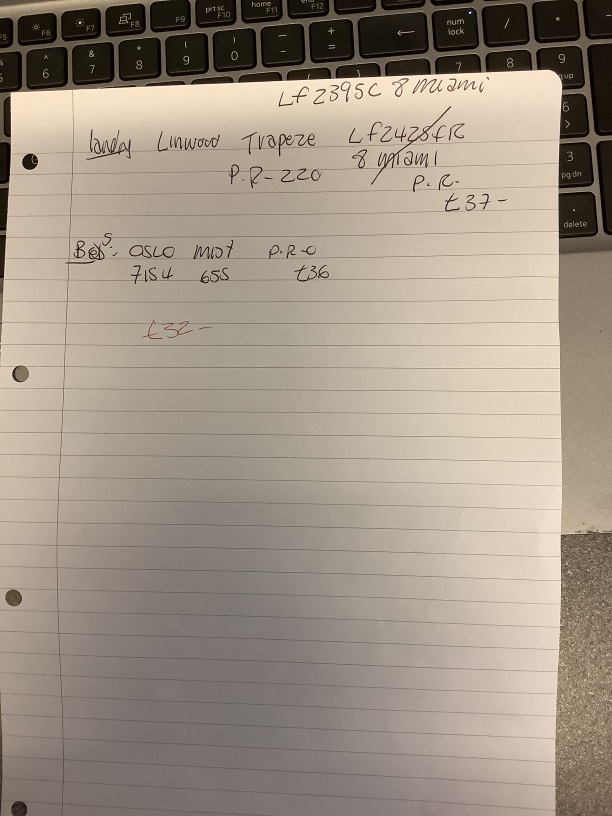 F5 F6 F7 F8 F9 prt sc F10 home F11 F12
6 & 7 * 8 ( 9 ) 0 - + = ← num lock / *
7 8 9
6 >
3 pg dn
. delete
LF2395C 8 Miami
Landg Linwood Trapeze LF2428FR
P.R-220 8 Miami
P.R.
£37-
Beds: OSLO MIST P.R-O
7154 655 £36
£32-